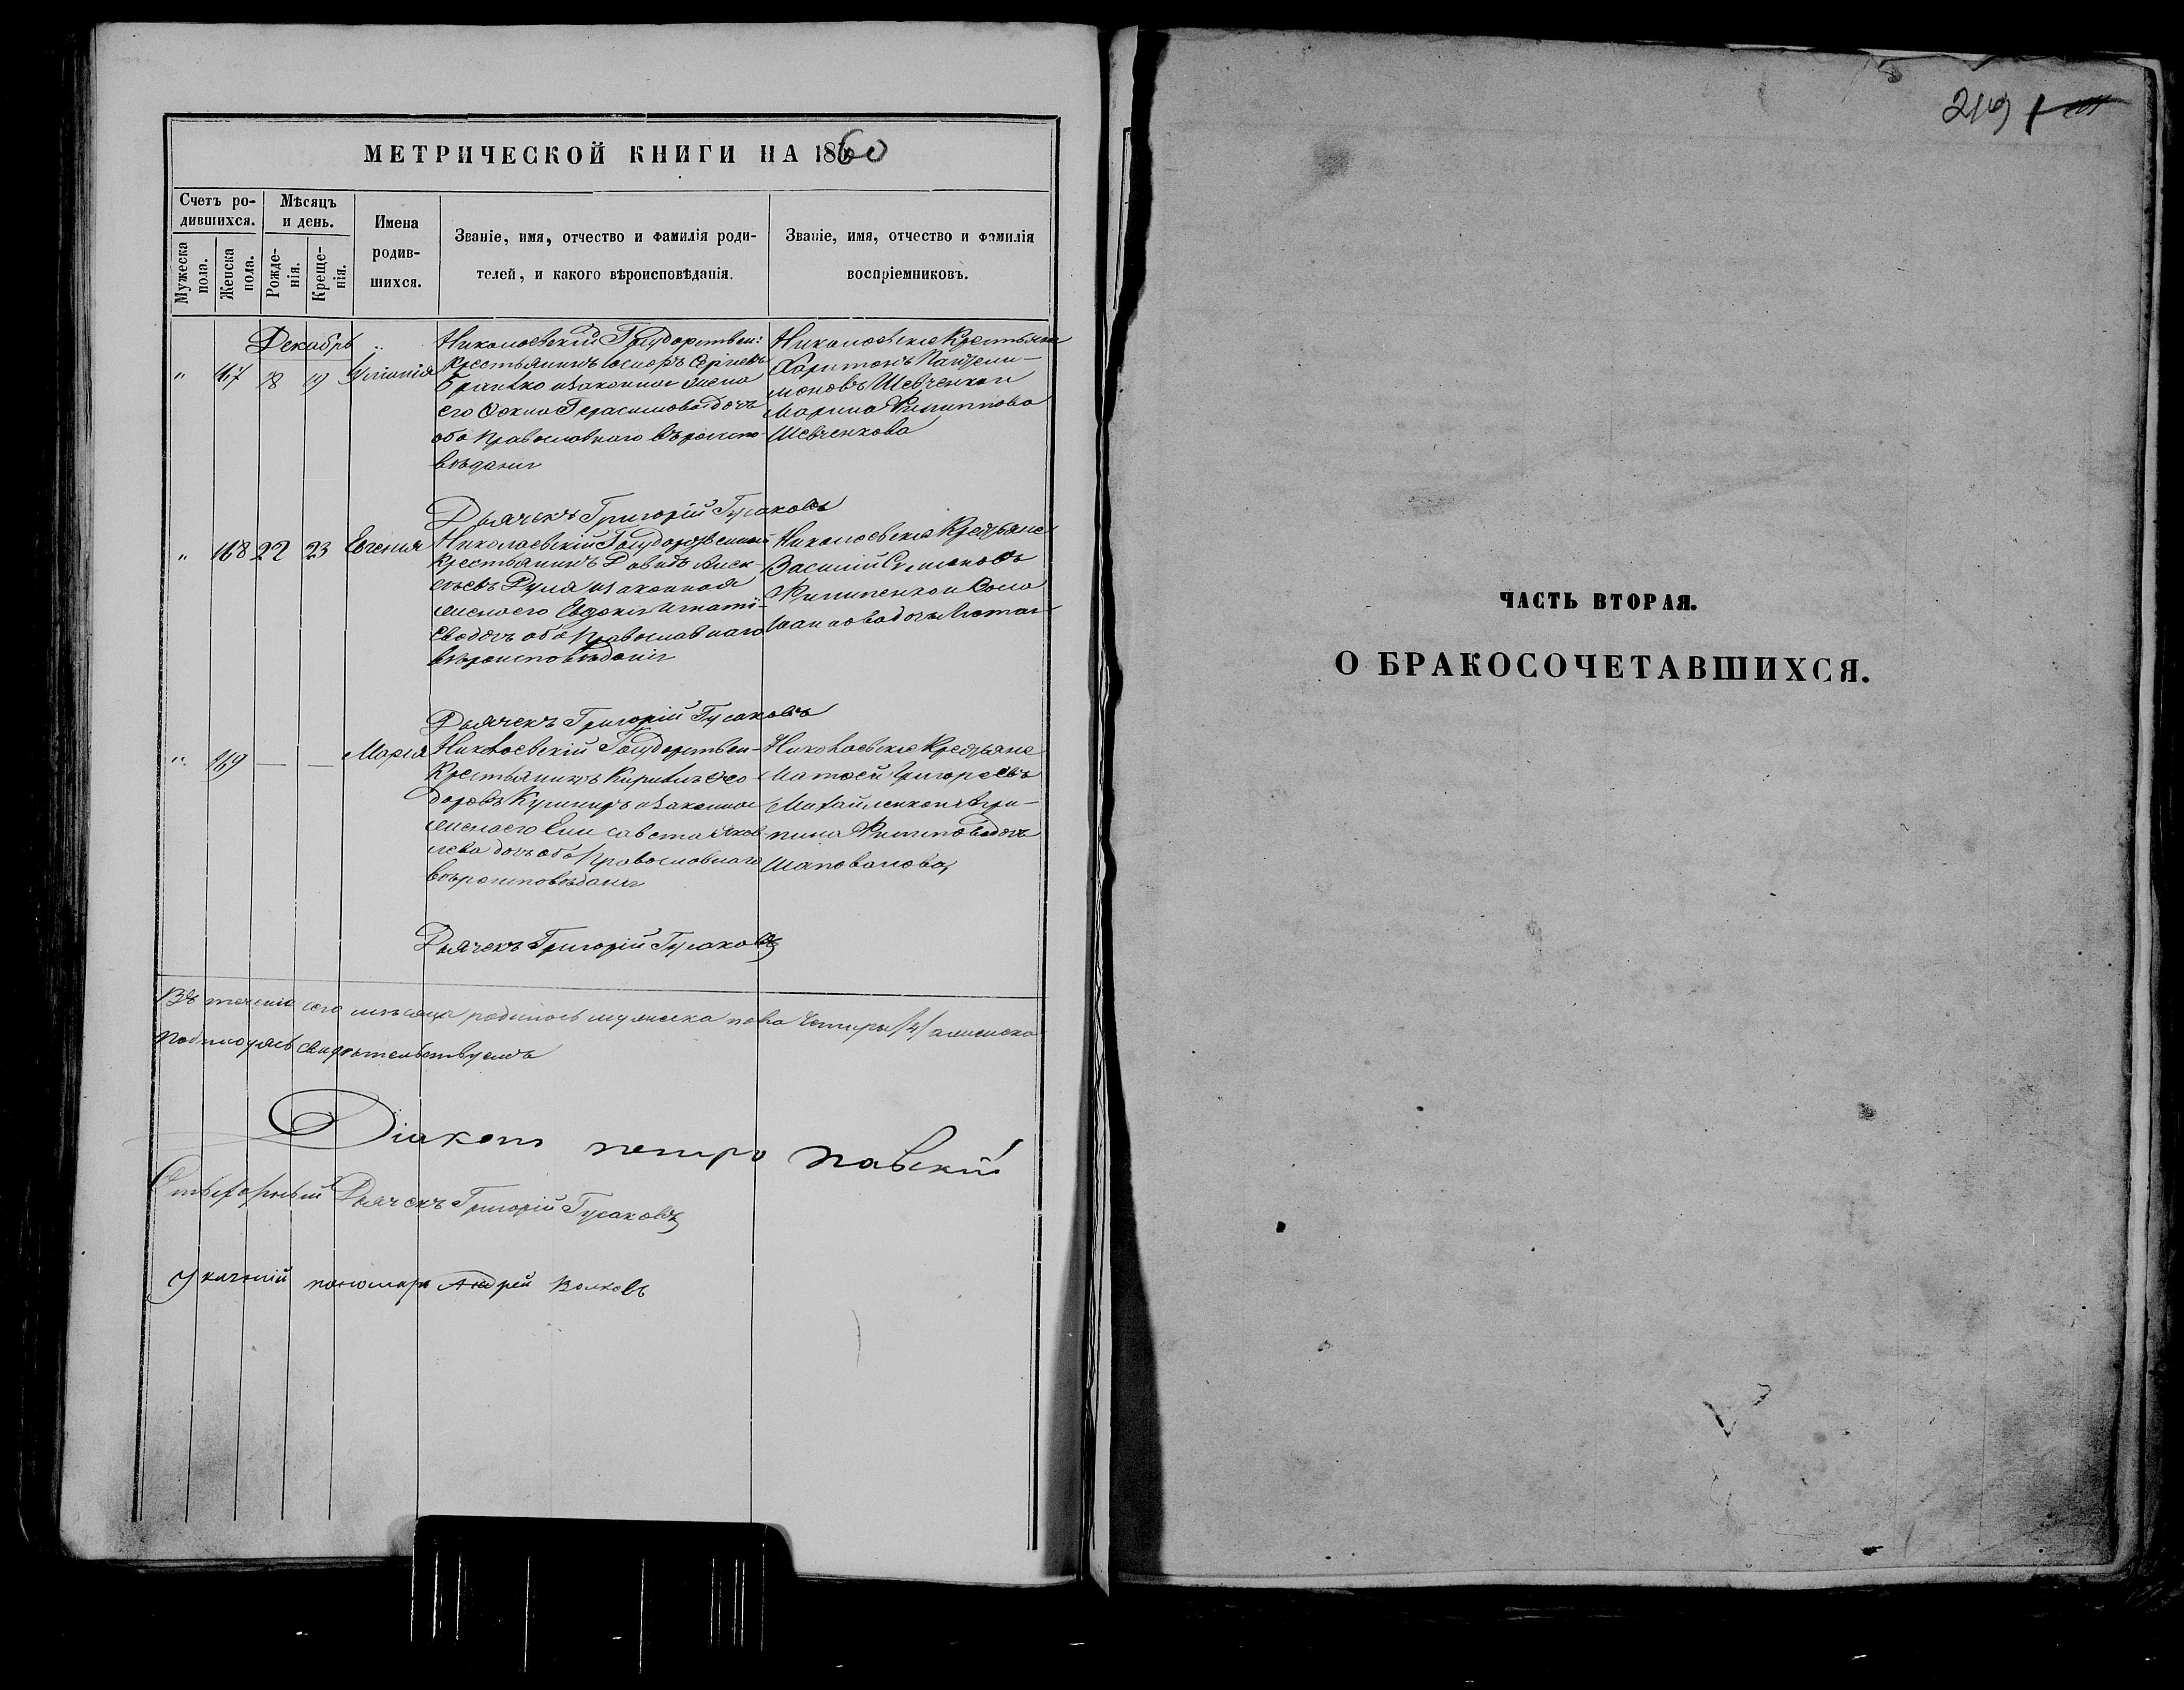 МЕТРИЧЕСКОЙ КНИГИ НА 1860
Счетъ ро-
дившихся.
Мѣсяцъ
и день.
Мужеска
пола.
Женска
пола.
Рожде-
нія.
Креще-
нія.
Имена
родив-
шихся.
Званіе, имя, отчество и фамилія роди-
телей, и какого вѣроисповѣданія.
Званіе, имя, отчество и фамилія
воспріемниковъ.
Декабрь
" 167 18 19 Уліанія
Николаевскій Государствен:
Крестьянинъ Іосифъ Сергіевъ
и законная жена
его Ѳекла Герасимова дочь
оба православнаго вѣроиспо-
вѣданія
Николаевскіе Крестьяне
Харитонъ Пантели-
моновъ Шевченко и
Марина Филиппова
Шевченкова
Дьячекъ Григорій Гусаковъ
" 168 22 23 Евгенія
Николаевскій Государственный
Крестьянинъ Давидъ Алек-
сѣевъ Руля и законная
жена его Евдокія Игнатії-
ева дочь оба православнаго
вѣроисповѣданія
Николаевскіе Крестьяне
Василий Симоновъ
Филипенко и
Иванова дочь
Дьячекъ Григорій Гусаковъ
" 169 — — Марія
Николаевскій Государствен-
Крестьянинъ Кирилъ Ѳео-
доровъ Кушниръ и законная
жена его Елисавета Яков-
лева дочь оба православнаго
вѣроисповѣданія
Николаевскіе Крестьяне
Матвей Григорьевъ
Михайленко и Агри-
пина Филипова дочь
Шаповалова
Дьячекъ Григорій Гусаковъ
Въ теченіе сего мѣсяца родилось мужеска пола Четыри /4/ а женска
свидѣтельствуемъ
Діаконъ петро павскій
Дьячекъ Григорій Гусаковъ
Указный пономарь Андрей Волковъ
219
ЧАСТЬ ВТОРАЯ.
О БРАКОСОЧЕТАВШИХСЯ.